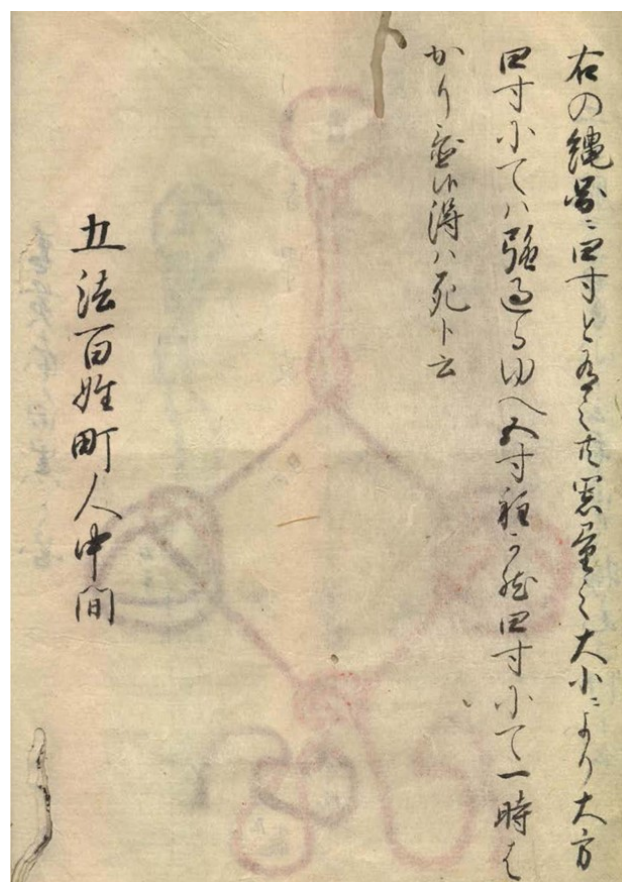 右の縄図ニ四寸と有之共罪の量之大小ニより大方
四寸ニてハ強過るゆへ五寸程可然四寸ニて一時も
かり候得ハ死ト云
五法百姓町人中間